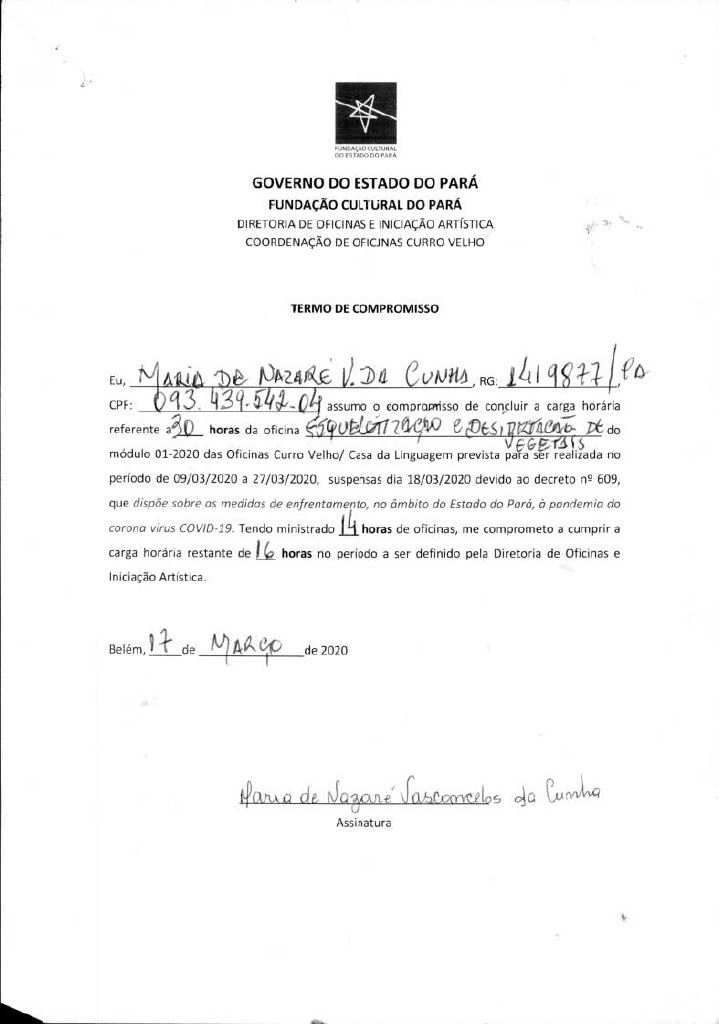 FUNDAÇÃO CULTURAL
DO ESTADO DO PARÁ
GOVERNO DO ESTADO DO PARÁ
FUNDAÇÃO CULTURAL DO PARÁ
DIRETORIA DE OFICINAS E INICIAÇÃO ARTÍSTICA
COORDENAÇÃO DE OFICINAS CURRO VELHO
TERMO DE COMPROMISSO
Eu, MARIA DE NAZARÉ V. DA CUNHA, RG: 1419877/PA
CPF: 093.439.542-04 assumo o compromisso de concluir a carga horária
referente a 30 horas da oficina ESQUELETIZAÇÃO E DESIDRATAÇÃO DE VEGETAIS do
módulo 01-2020 das Oficinas Curro Velho/ Casa da Linguagem prevista para ser realizada no
período de 09/03/2020 a 27/03/2020, suspensas dia 18/03/2020 devido ao decreto nº 609,
que dispõe sobre as medidas de enfrentamento, no âmbito do Estado do Pará, à pandemia do
corona vírus COVID-19. Tendo ministrado 14 horas de oficinas, me comprometo a cumprir a
carga horária restante de 16 horas no período a ser definido pela Diretoria de Oficinas e
Iniciação Artística.
Belém, 17 de MARÇO de 2020
Maria de Nazaré Vasconcelos da Cunha
Assinatura